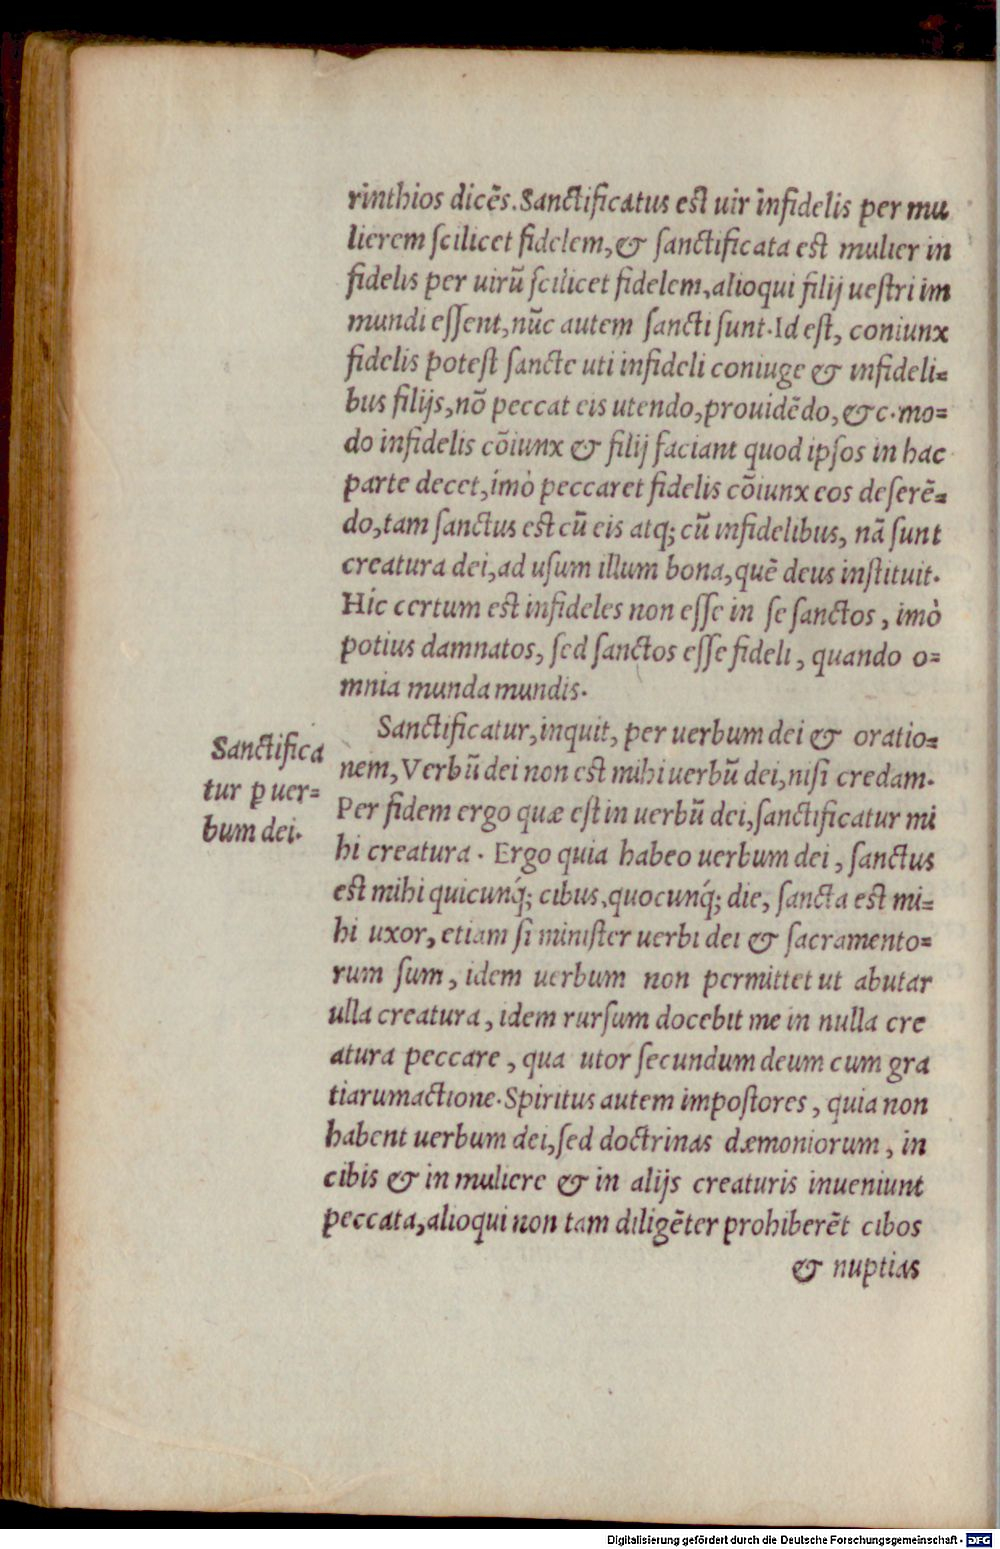 rinthios dicẽs. Sanctificatus est uir infidelis per mu
lierem ſcilicet fidelem, & ſanctificata est mulier in
fidelis per uirũ ſcilicet fidelem, alioqui filij ueſtri im
mundi eſſent, nũc autem ſancti ſunt. Id eſt, coniunx
fidelis poteſt ſancte uti infideli coniuge & infideli=
bus filijs, nõ peccat eis utendo, prouidẽdo, &c. mo=
do infidelis cõiunx & filij faciant quod ipſos in hac
parte decet, imò peccaret fidelis cõiunx eos deſerẽ=
do, tam ſanctus est cũ eis atq; cũ infidelibus, nã ſunt
creatura dei, ad uſum illum bona, quẽ deus inſtituit.
Hic certum est infideles non eſſe in ſe ſanctos, imò
potius damnatos, ſed ſanctos eſſe fideli, quando o=
mnia munda mundis.
Sanctificatur, inquit, per uerbum dei & oratio=
nem, Verbũ dei non est mihi uerbũ dei, niſi credam.
Per fidem ergo quæ eſt in uerbũ dei, ſanctificatur mi
hi creatura. Ergo quia habeo uerbum dei, ſanctus
est mihi quicunq́; cibus, quocunq́; die, ſancta est mi=
hi uxor, etiam ſi miniſter uerbi dei & ſacramento=
rum ſum, idem uerbum non permittet ut abutar
ulla creatura, idem rurſum docebit me in nulla cre
atura peccare, qua utor ſecundum deum cum gra
tiarumactione. Spiritus autem impoſtores, quia non
habent uerbum dei, ſed doctrinas dæmoniorum, in
cibis & in muliere & in alijs creaturis inueniunt
peccata, alioqui non tam diligẽter prohiberẽt cibos
& nuptias
Sanctifica
tur ꝑ uer=
bum dei.
Digitalisierung gefördert durch die Deutsche Forschungsgemeinschaft - DFG